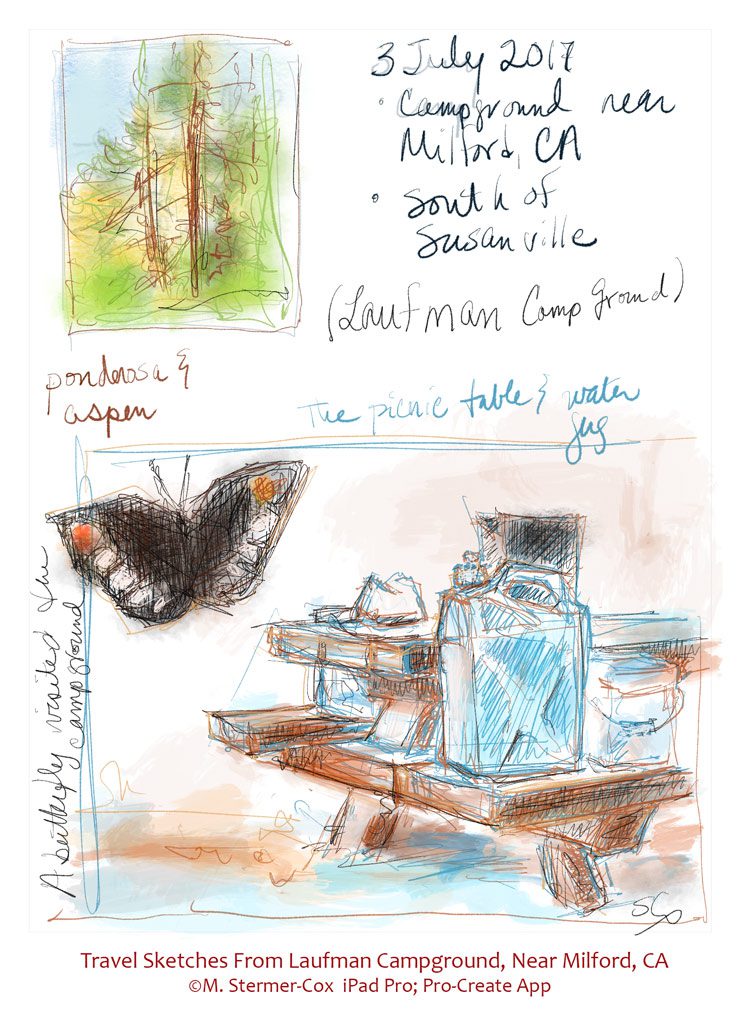 3 July 2017
• Campground near
Milford, CA
• South of
Susanville
(Laufman Camp Ground)
ponderosa &
aspen
The picnic table & water
jug
A butterfly visited the
campground
Travel Sketches From Laufman Campground, Near Milford, CA
©M. Stermer-Cox iPad Pro; Pro-Create App